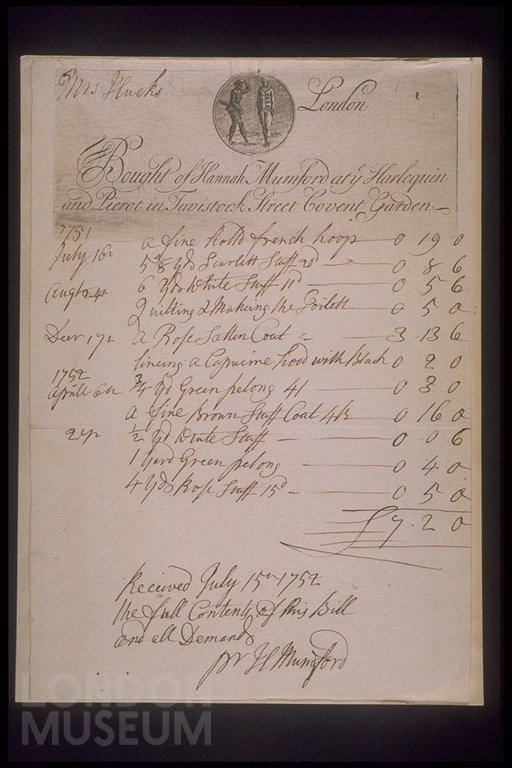 Mrs Hucks
London
Bought of Hannah Mumford at ye Harlequin
and Pierot in Tavistock Street Covent Garden
1751
July 16 a fine holld french hoop 0 19 0
5 5/8 yds Scarlett Stuff 0 8 6
Augt 24 6 yds White Stuff 11d 0 5 6
Quilting & Makeing the Toilett 0 5 0
Decr 17 a Rose Sattin Coat 3 13 6
lineing a Capucine hood with Black 0 2 0
1752
Aprill 6 3/4 yd Green pelong 4/ 0 3 0
a fine Brown Stuff Coat 0 16 0
½ yd White Stuff 0 0 6
1 yard Green pelong 0 4 0
4 yds Rose Stuff 15d 0 5 0
£7.2 0
Received July 15 1752
the full Contents of this Bill
and all Demands
pr H Mumford
LONDON
MUSEUM